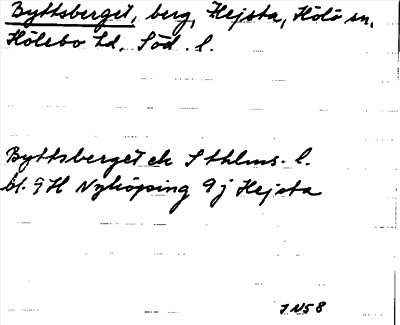 Byttsberget, berg, Hejsta, Hölö sn,
Hölebo hd, Söd. l.
Byttsberget ek Sthlms. l.
bl. 9H Nyköping 9j Hejsta